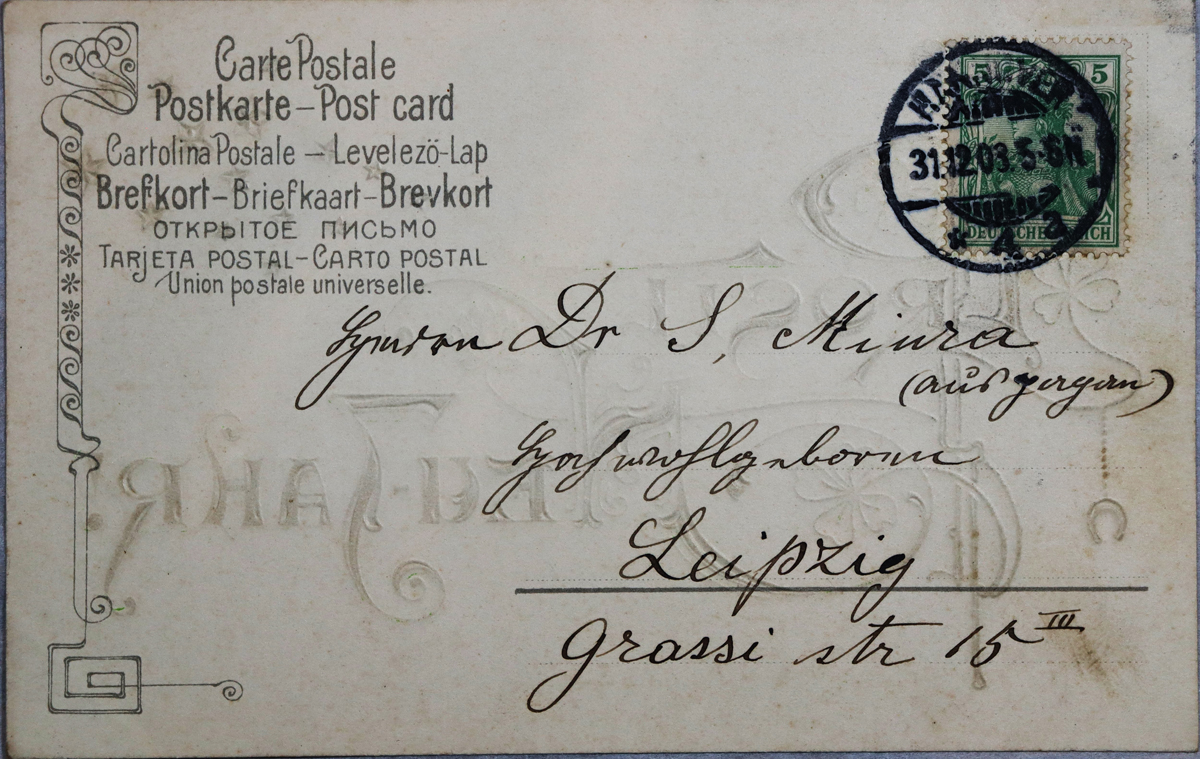 Carte Postale
Postkarte – Post card
Cartolina Postale – Levelezö-Lap
Brefkort – Briefkaart – Brevkort
ОТКРЫТОЕ ПИСЬМО
TARJETA POSTAL – CARTO POSTAL
Union postale universelle.
5 5
HANNOVER
31.12.03. 5-6N
* 4 a
DEUTSCHES REICH
Herrn Dr S. Miura
(aus Japan)
Hochwohlgeboren
Leipzig
Grassi str 15 III
PROSIT
NEU-JAHR.